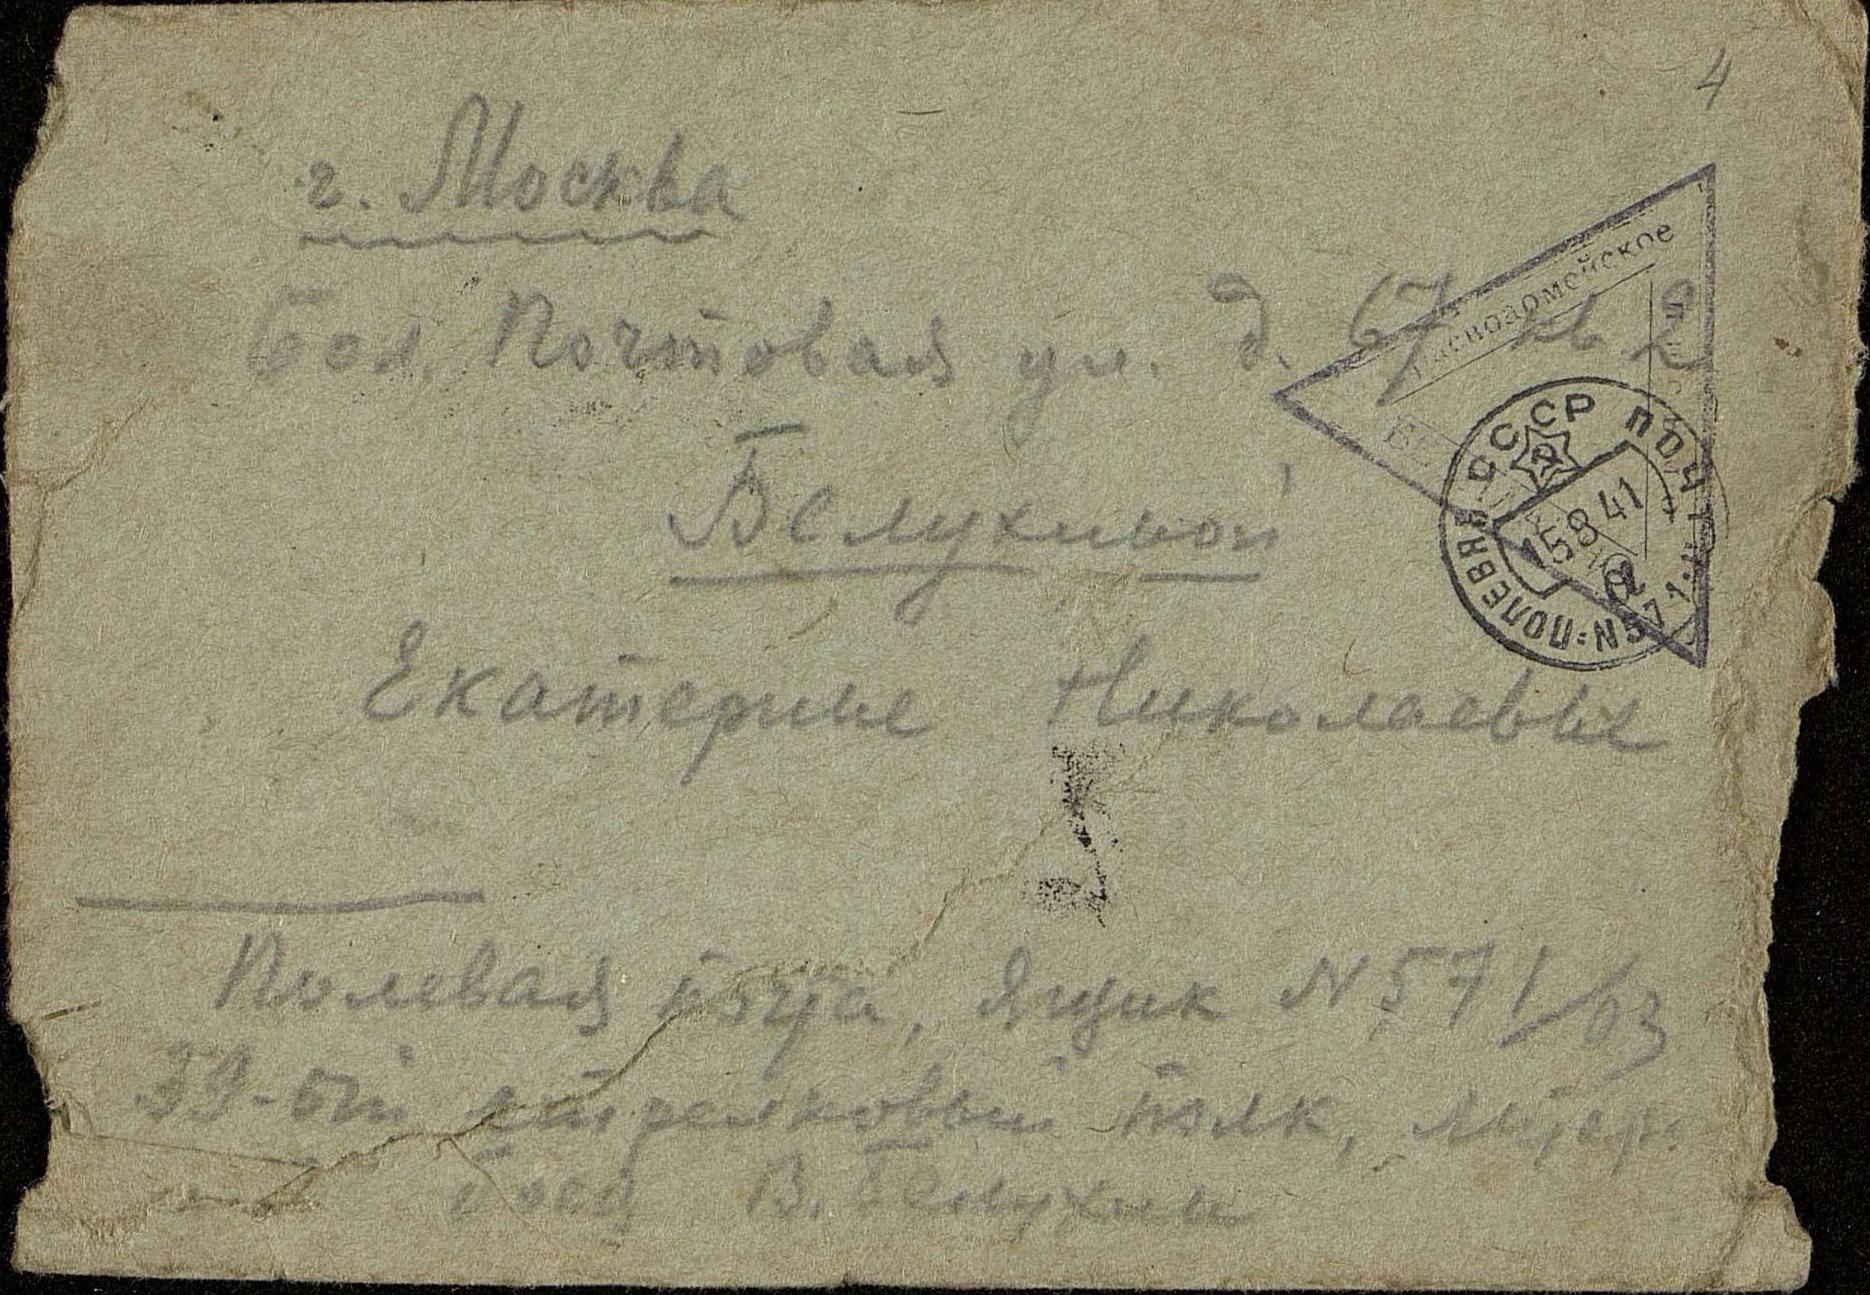 4
г. Москва
Бол. Почтовая ул. д. 67 кв 2
Белухиной
Екатерине Николаевне
Красноармейское
СССР ПОЛЕВАЯ ПОЧТА
15 8 41
N 571
Полевая почта, Ящик N 571/63
39-ый стрелковый полк, литер.
боец В. Белухин